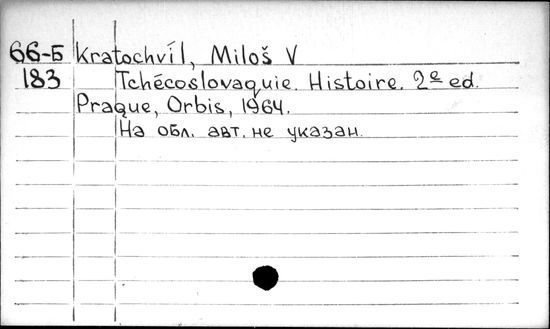 66-Б Kratochvíl, Miloš V
183 Tchécoslovaquie. Histoire. 2e ed.
Praque, Orbis, 1964.
На обл. авт. не указан.